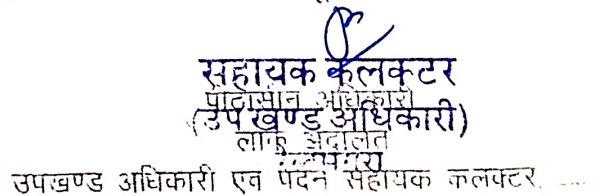 सहायक कलक्टर
पीठासीन अधिकारी
(उप खण्ड अधिकारी)
लोक अदालत
उपखण्ड अधिकारी एवं पदेन सहायक कलक्टर